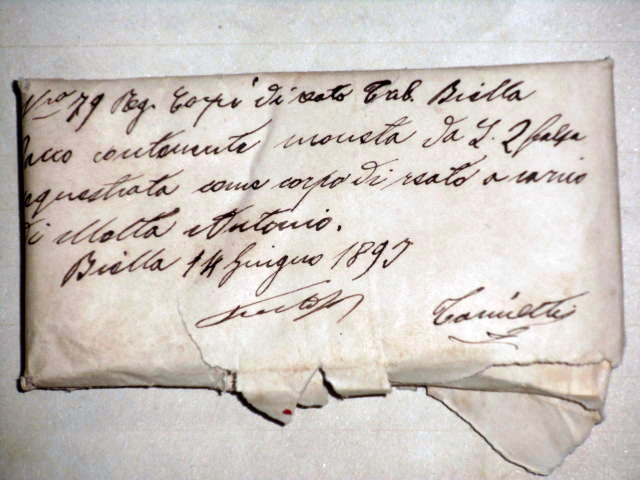 Nro 79 Reg. Corpi di reato Trib. Biella
Pacco contenente moneta da L. 2 falsa
sequestrata come corpo di reato a carico
di Motta Antonio.
Biella 14 Giugno 1897